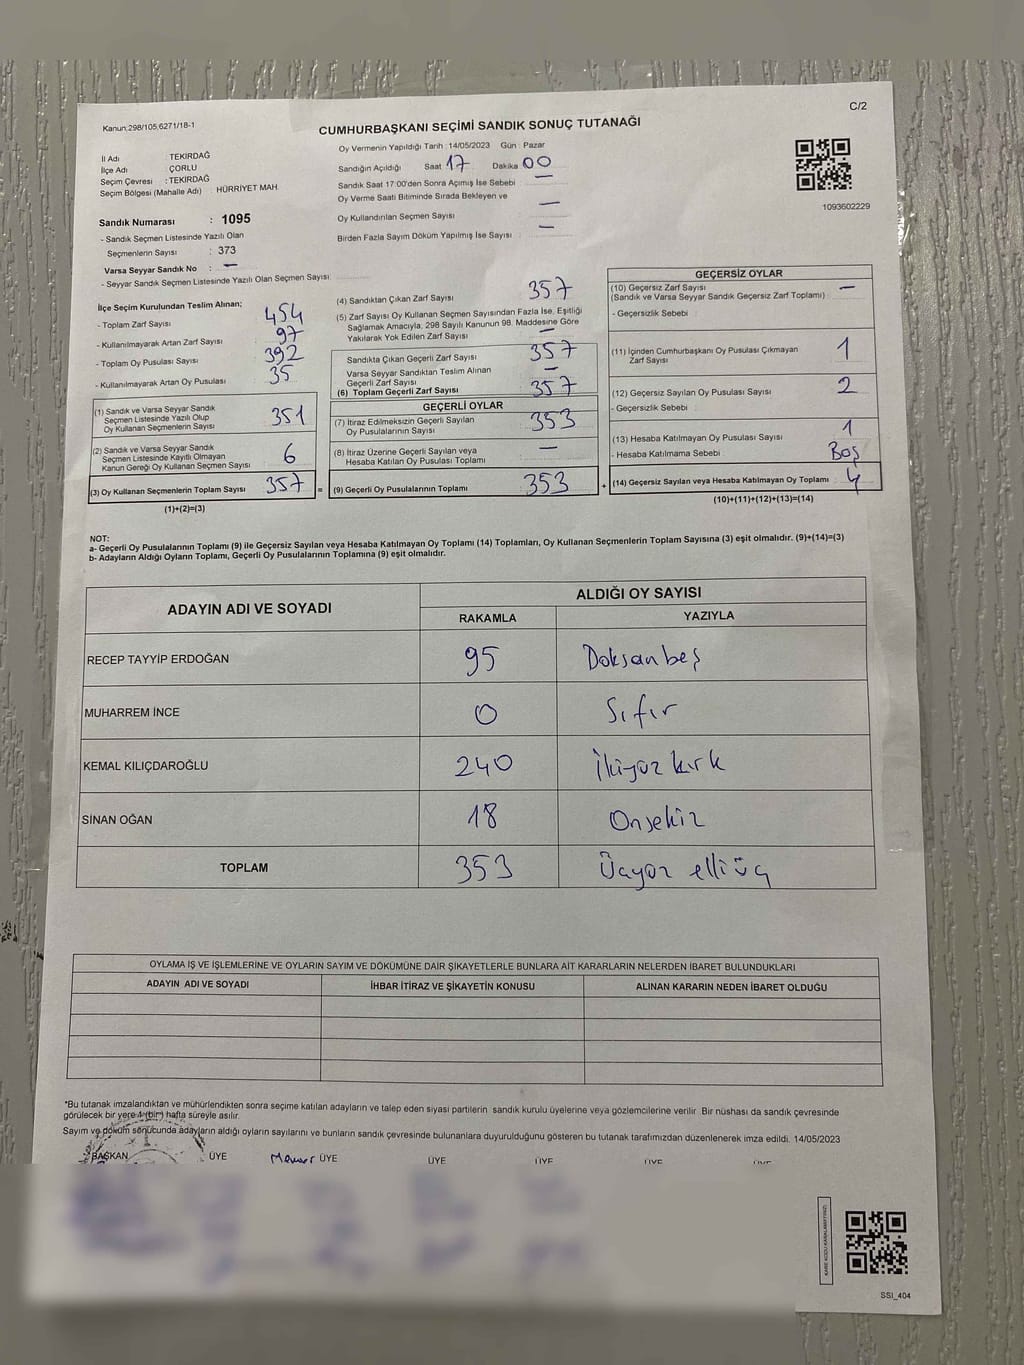 Kanun:298/105,6271/18-1
C/2
CUMHURBAŞKANI SEÇİMİ SANDIK SONUÇ TUTANAĞI
İl Adı TEKİRDAĞ
İlçe Adı ÇORLU
Seçim Çevresi : TEKİRDAĞ
Seçim Bölgesi (Mahalle Adı) : HÜRRİYET MAH.
Sandık Numarası : 1095
- Sandık Seçmen Listesinde Yazılı Olan
Seçmenlerin Sayısı : 373
Varsa Seyyar Sandık No : —
- Seyyar Sandık Seçmen Listesinde Yazılı Olan Seçmen Sayısı:
Oy Vermenin Yapıldığı Tarih : 14/05/2023 Gün : Pazar
Sandığın Açıldığı Saat 17 Dakika 00
Sandık Saat 17:00'den Sonra Açımış İse Sebebi —
Oy Verme Saati Bitiminde Sırada Bekleyen ve
Oy Kullandırılan Seçmen Sayısı —
Birden Fazla Sayım Döküm Yapılmış İse Sayısı —
1093602229
İlçe Seçim Kurulundan Teslim Alınan;
- Toplam Zarf Sayısı 454
- Kullanılmayarak Artan Zarf Sayısı 97
- Toplam Oy Pusulası Sayısı 392
- Kullanılmayarak Artan Oy Pusulası 35
(1) Sandık ve Varsa Seyyar Sandık
Seçmen Listesinde Yazılı Olup
Oy Kullanan Seçmenlerin Sayısı 351
(2) Sandık ve Varsa Seyyar Sandık
Seçmen Listesinde Kayıtlı Olmayan
Kanun Gereği Oy Kullanan Seçmen Sayısı 6
(3) Oy Kullanan Seçmenlerin Toplam Sayısı 357 =
(1)+(2)=(3)
(4) Sandıktan Çıkan Zarf Sayısı 357
(5) Zarf Sayısı Oy Kullanan Seçmen Sayısından Fazla İse, Eşitliği
Sağlamak Amacıyla, 298 Sayılı Kanunun 98. Maddesine Göre
Yakılarak Yok Edilen Zarf Sayısı —
Sandıkta Çıkan Geçerli Zarf Sayısı 357
Varsa Seyyar Sandıktan Teslim Alınan
Geçerli Zarf Sayısı —
(6) Toplam Geçerli Zarf Sayısı 357
GEÇERLİ OYLAR
(7) İtiraz Edilmeksizin Geçerli Sayılan
Oy Pusulalarının Sayısı 353
(8) İtiraz Üzerine Geçerli Sayılan veya
Hesaba Katılan Oy Pusulası Toplamı —
(9) Geçerli Oy Pusulalarının Toplamı 353 +
GEÇERSİZ OYLAR
(10) Geçersiz Zarf Sayısı —
(Sandık ve Varsa Seyyar Sandık Geçersiz Zarf Toplamı)
- Geçersizlik Sebebi
(11) İçinden Cumhurbaşkanı Oy Pusulası Çıkmayan
Zarf Sayısı 1
(12) Geçersiz Sayılan Oy Pusulası Sayısı 2
- Geçersizlik Sebebi
(13) Hesaba Katılmayan Oy Pusulası Sayısı 1
- Hesaba Katılmama Sebebi Boş
(14) Geçersiz Sayılan veya Hesaba Katılmayan Oy Toplamı 4
(10)+(11)+(12)+(13)=(14)
NOT:
a- Geçerli Oy Pusulalarının Toplamı (9) ile Geçersiz Sayılan veya Hesaba Katılmayan Oy Toplamı (14) Toplamları, Oy Kullanan Seçmenlerin Toplam Sayısına (3) eşit olmalıdır. (9)+(14)=(3)
b- Adayların Aldığı Oyların Toplamı, Geçerli Oy Pusulalarının Toplamına (9) eşit olmalıdır.
ADAYIN ADI VE SOYADI
ALDIĞI OY SAYISI
RAKAMLA YAZIYLA
RECEP TAYYİP ERDOĞAN 95 Doksanbeş
MUHARREM İNCE 0 Sıfır
KEMAL KILIÇDAROĞLU 240 İkiyüz kırk
SİNAN OĞAN 18 Onsekiz
TOPLAM 353 Üçyüz elliüç
OYLAMA İŞ VE İŞLEMLERİNE VE OYLARIN SAYIM VE DÖKÜMÜNE DAİR ŞİKAYETLERLE BUNLARA AİT KARARLARIN NELERDEN İBARET BULUNDUKLARI
ADAYIN ADI VE SOYADI İHBAR İTİRAZ VE ŞİKAYETİN KONUSU ALINAN KARARIN NEDEN İBARET OLDUĞU
*Bu tutanak imzalandıktan ve mühürlendikten sonra seçime katılan adayların ve talep eden siyasi partilerin sandık kurulu üyelerine veya gözlemcilerine verilir. Bir nüshası da sandık çevresinde
görülecek bir yere 1 (bir) hafta süreyle asılır.
Sayım ve döküm sonucunda adayların aldığı oyların sayılarını ve bunların sandık çevresinde bulunanlara duyurulduğunu gösteren bu tutanak tarafımızdan düzenlenerek imza edildi. 14/05/2023
BAŞKAN ÜYE Memur ÜYE ÜYE ÜYE ÜYE ÜYE
SSI_404